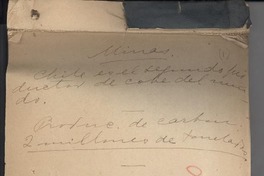 Minas.
Chile es el segundo pro
ductor de cobre del mun
do.
Produc. de carbon
2 millones de toneladas